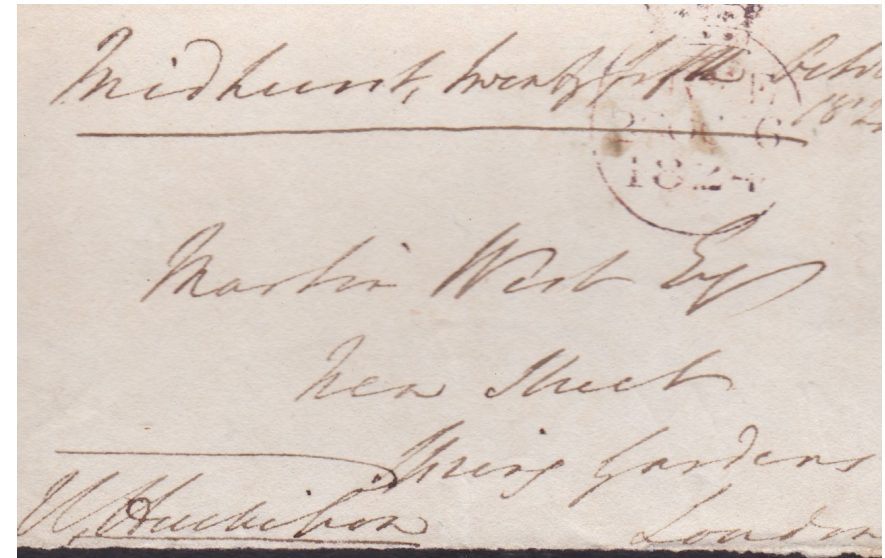 Midhurst, twenty fifth Octo
1824
FREE
26 OC 26
1824
Martin West Esq
New Street
Spring Gardens
London
W, Huskisson